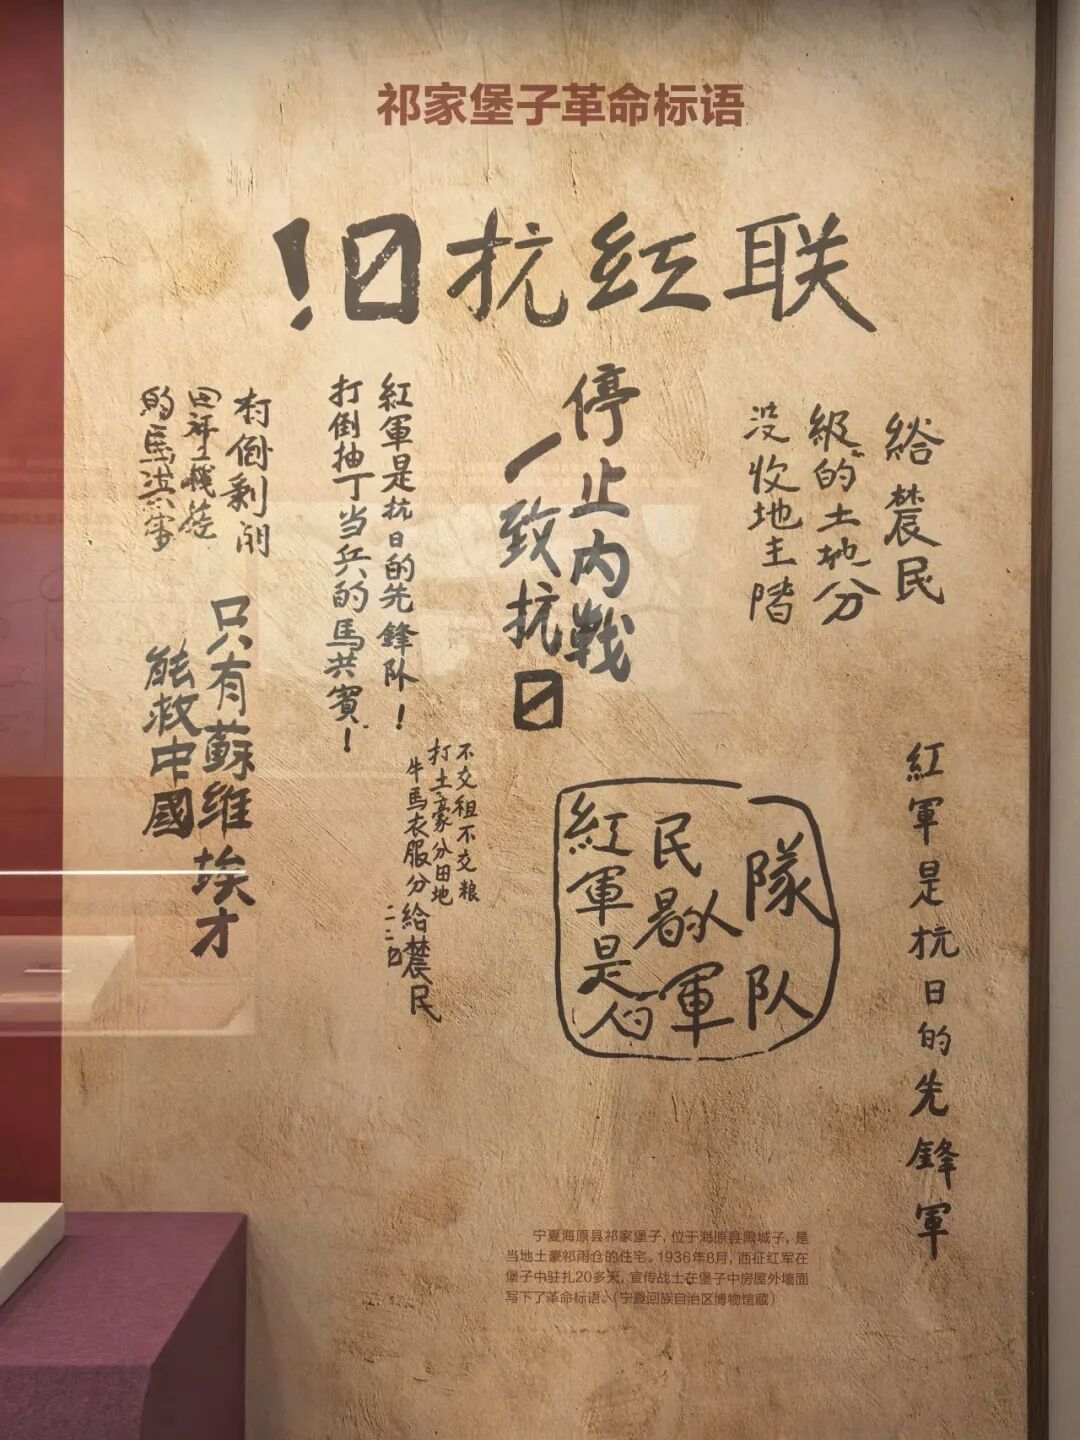 祁家堡子革命标语
联红抗日！
給農民
級的土地分
没收地主階
停止内戰
一致抗日
紅軍是抗日的先鋒队！
打倒抽丁当兵的馬共賓！
打倒剥削
的馬淇軍
只有蘇維埃才
能救中國
不交租不交粮
打土豪分田地
牛馬衣服分給農民
紅軍是人的
民 軍
隊队
紅軍是抗日的先鋒軍
宁夏海原县祁家堡子，位于海原县黑城子，是
当地土豪祁雨仓的住宅。1936年8月，西征红军在
堡子中驻扎20多天，宣传战士在堡子中房屋外墙面
写下了革命标语。（宁夏回族自治区博物馆藏）